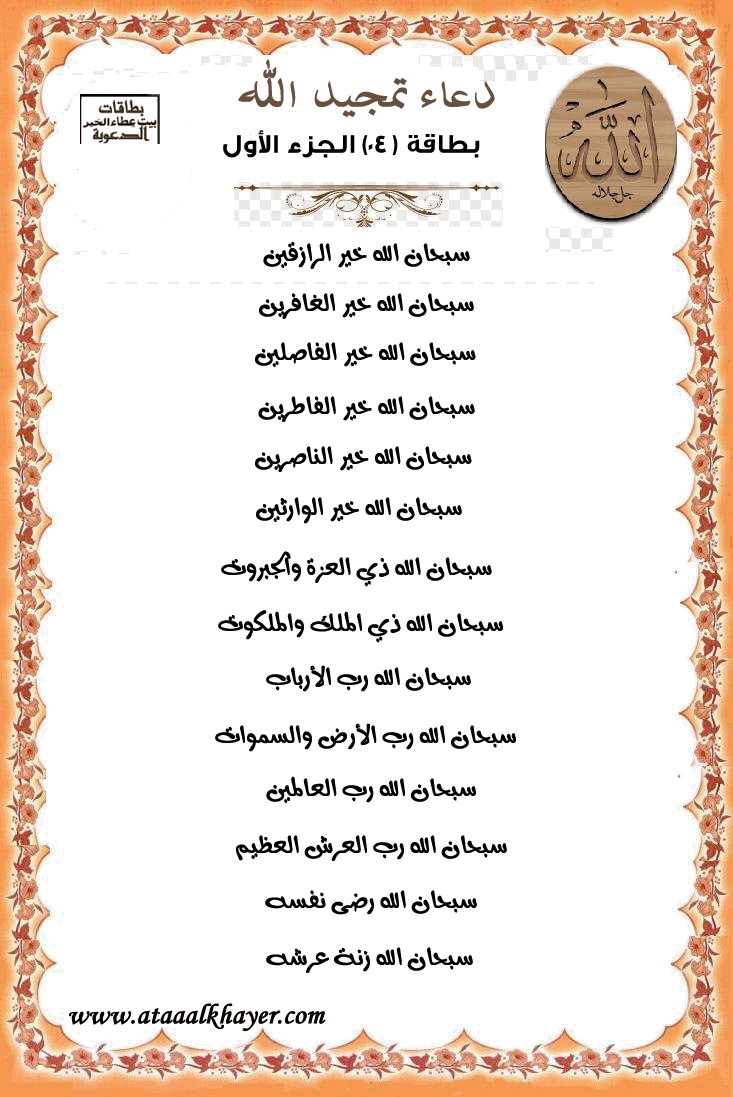 دعاء تمجيد الله
بطاقة (٠٤) الجزء الأول
بطاقات
بيت عطاء الخير
الدعوية
الله
جل جلاله
سبحان الله خير الرازقين
سبحان الله خير الغافرين
سبحان الله خير الفاصلين
سبحان الله خير الفاطرين
سبحان الله خير الناصرين
سبحان الله خير الوارثين
سبحان الله ذي العزة والجبروت
سبحان الله ذي الملك والملكوت
سبحان الله رب الأرباب
سبحان الله رب الأرض والسموات
سبحان الله رب العالمين
سبحان الله رب العرش العظيم
سبحان الله رضى نفسه
سبحان الله زنة عرشه
www.ataaalkhayer.com